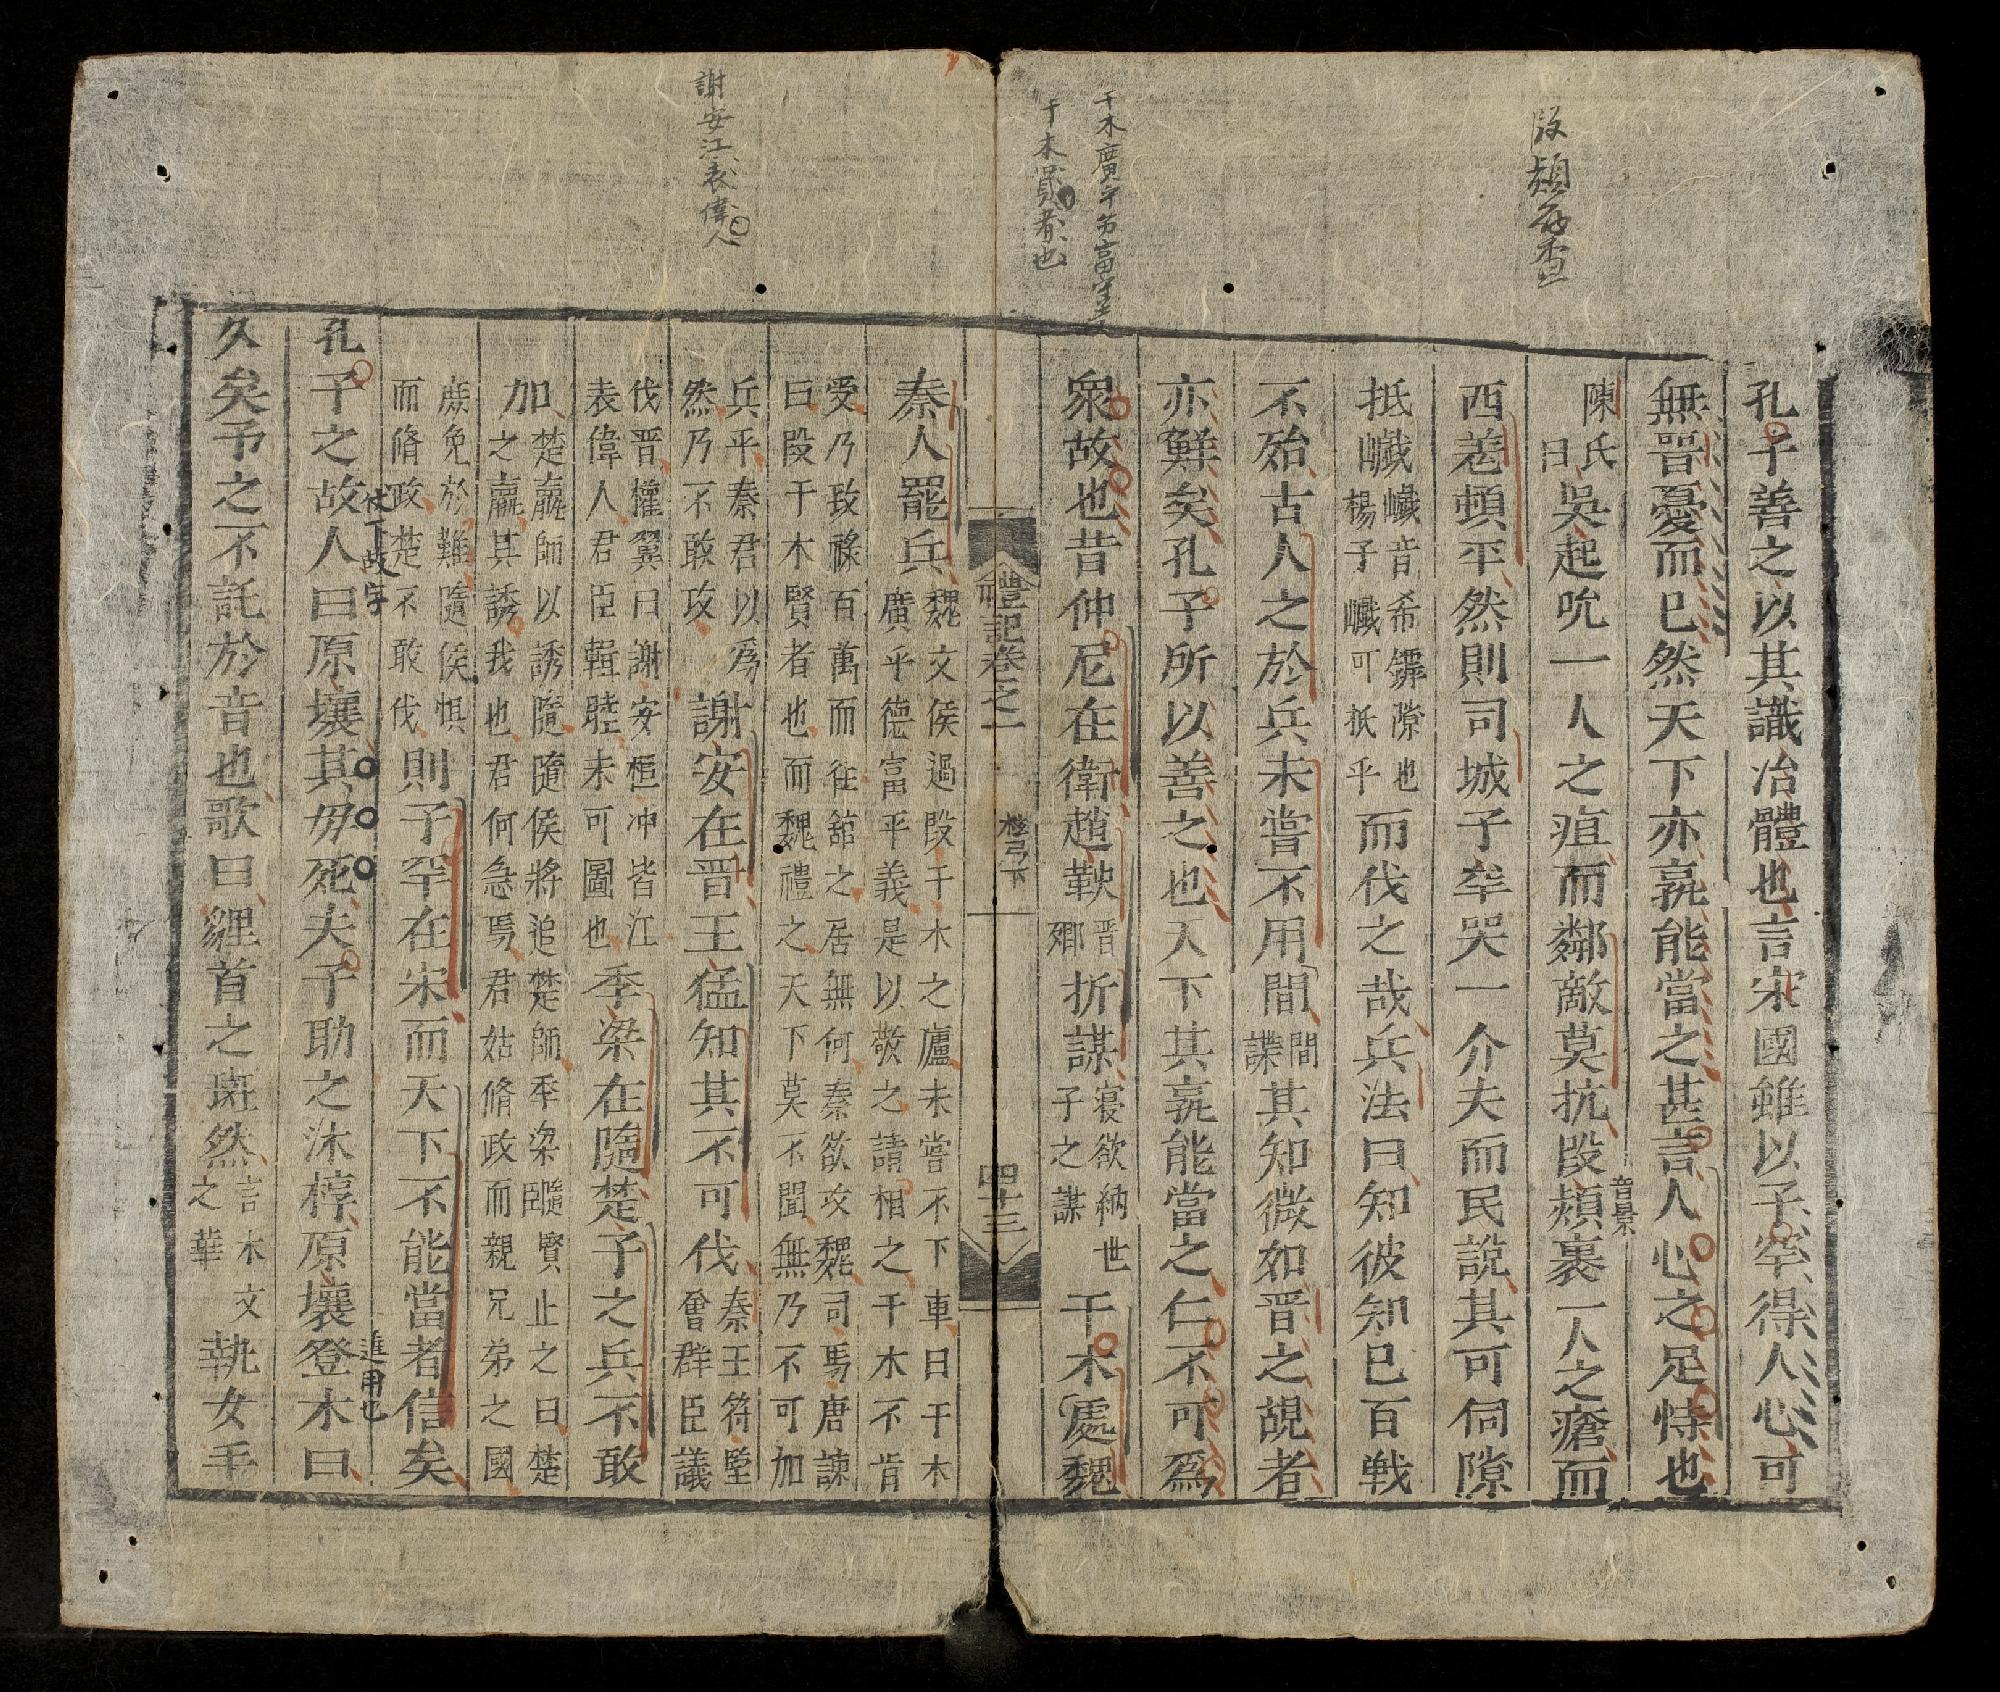 孔子善之以其識治體也言宋國雖以子罕得人心可
無晋憂而已然天下亦孰能當之甚言人心之足恃也
陳氏曰吳起吮一人之疽而鄰敵莫抗段熲音景裹一人之瘡而
西羌頓平然則司城子罕哭一介夫而民說其可伺隙
抵巇巇音希罅隙也楊子巇可抵乎而伐之哉兵法曰知彼知己百戰
不殆古人之於兵未嘗不用間間諜其知微如晋之覘者
亦鮮矣孔子所以善之也天下其孰能當之仁不可爲
衆故也昔仲尼在衛趙鞅晋卿折謀寑欲納世子之謀干木處魏
禮記卷之一 檀弓下 四十三
秦人罷兵魏文侯過段干木之廬未嘗不下車曰干木
廣乎德富乎義是以敬之請相之干木不肯
受乃致祿百萬而往舘之居無何秦欲攻魏司馬唐諫
曰段干木賢者也而魏禮之天下莫不聞無乃不可加
兵乎秦君以爲然乃不敢攻謝安在晋王猛知其不可伐秦王符堅會群臣議
伐晋權翼曰謝安桓冲皆江表偉人君臣輯睦未可圖也季梁在隨楚子之兵不敢
加楚羸師以誘隨隨侯將追楚師季梁隨臣賢止之曰楚
之羸其誘我也君何急焉君姑脩政而親兄弟之國
庶免於難隨侯惧而脩政楚不敢伐則子罕在宋而天下不能當者信矣
孔子之故人曰原壤其母死夫子助之沐椁原壤登木曰
久矣予之不託於音也歌曰貍首之斑然言木文之華執女手
干木賢者也
謝安江表偉人
伏下故字